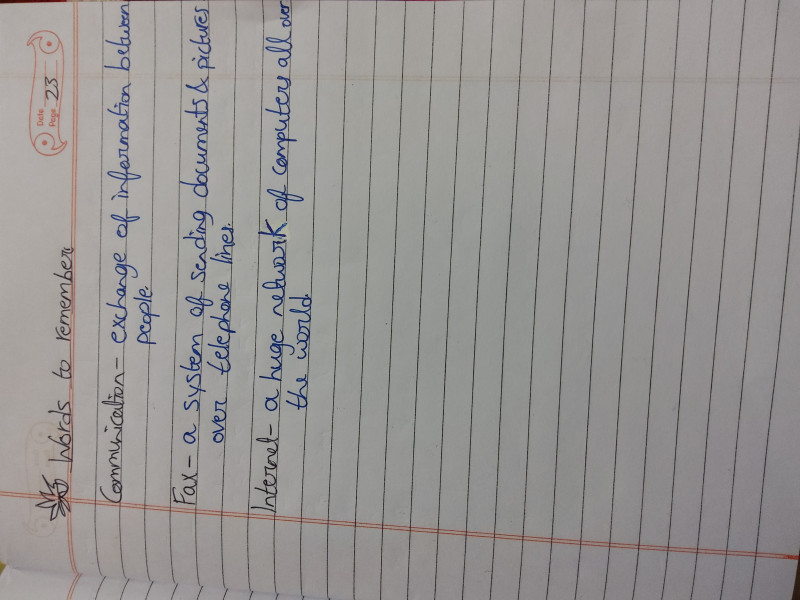 Date
Page 23
Words to remember
Communication - exchange of information between
people.
Fax - a system of sending documents & pictures
over telephone lines.
Internet - a huge network of computers all over
the world.